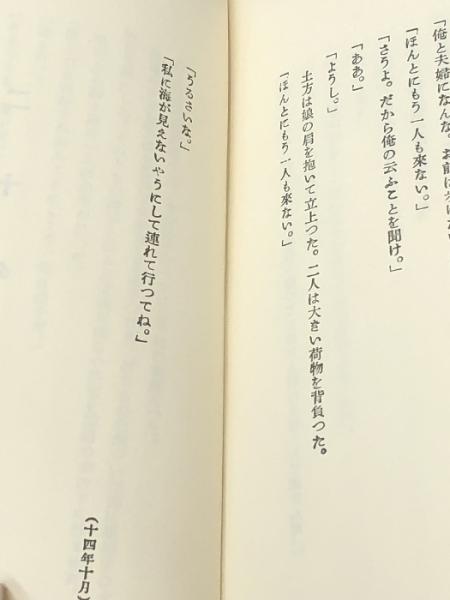 「俺と夫婦になんな。お前は
「ほんとにもう一人も來ない。」
「さうよ。だから俺の云ふことを聞け。」
「ああ。」
「ようし。」
土方は娘の肩を抱いて立上つた。二人は大きい荷物を背負つた。
「ほんとにもう一人も來ない。」
「うるさいな。」
「私に海が見えないやうにして連れて行つてね。」
（十四年十月）